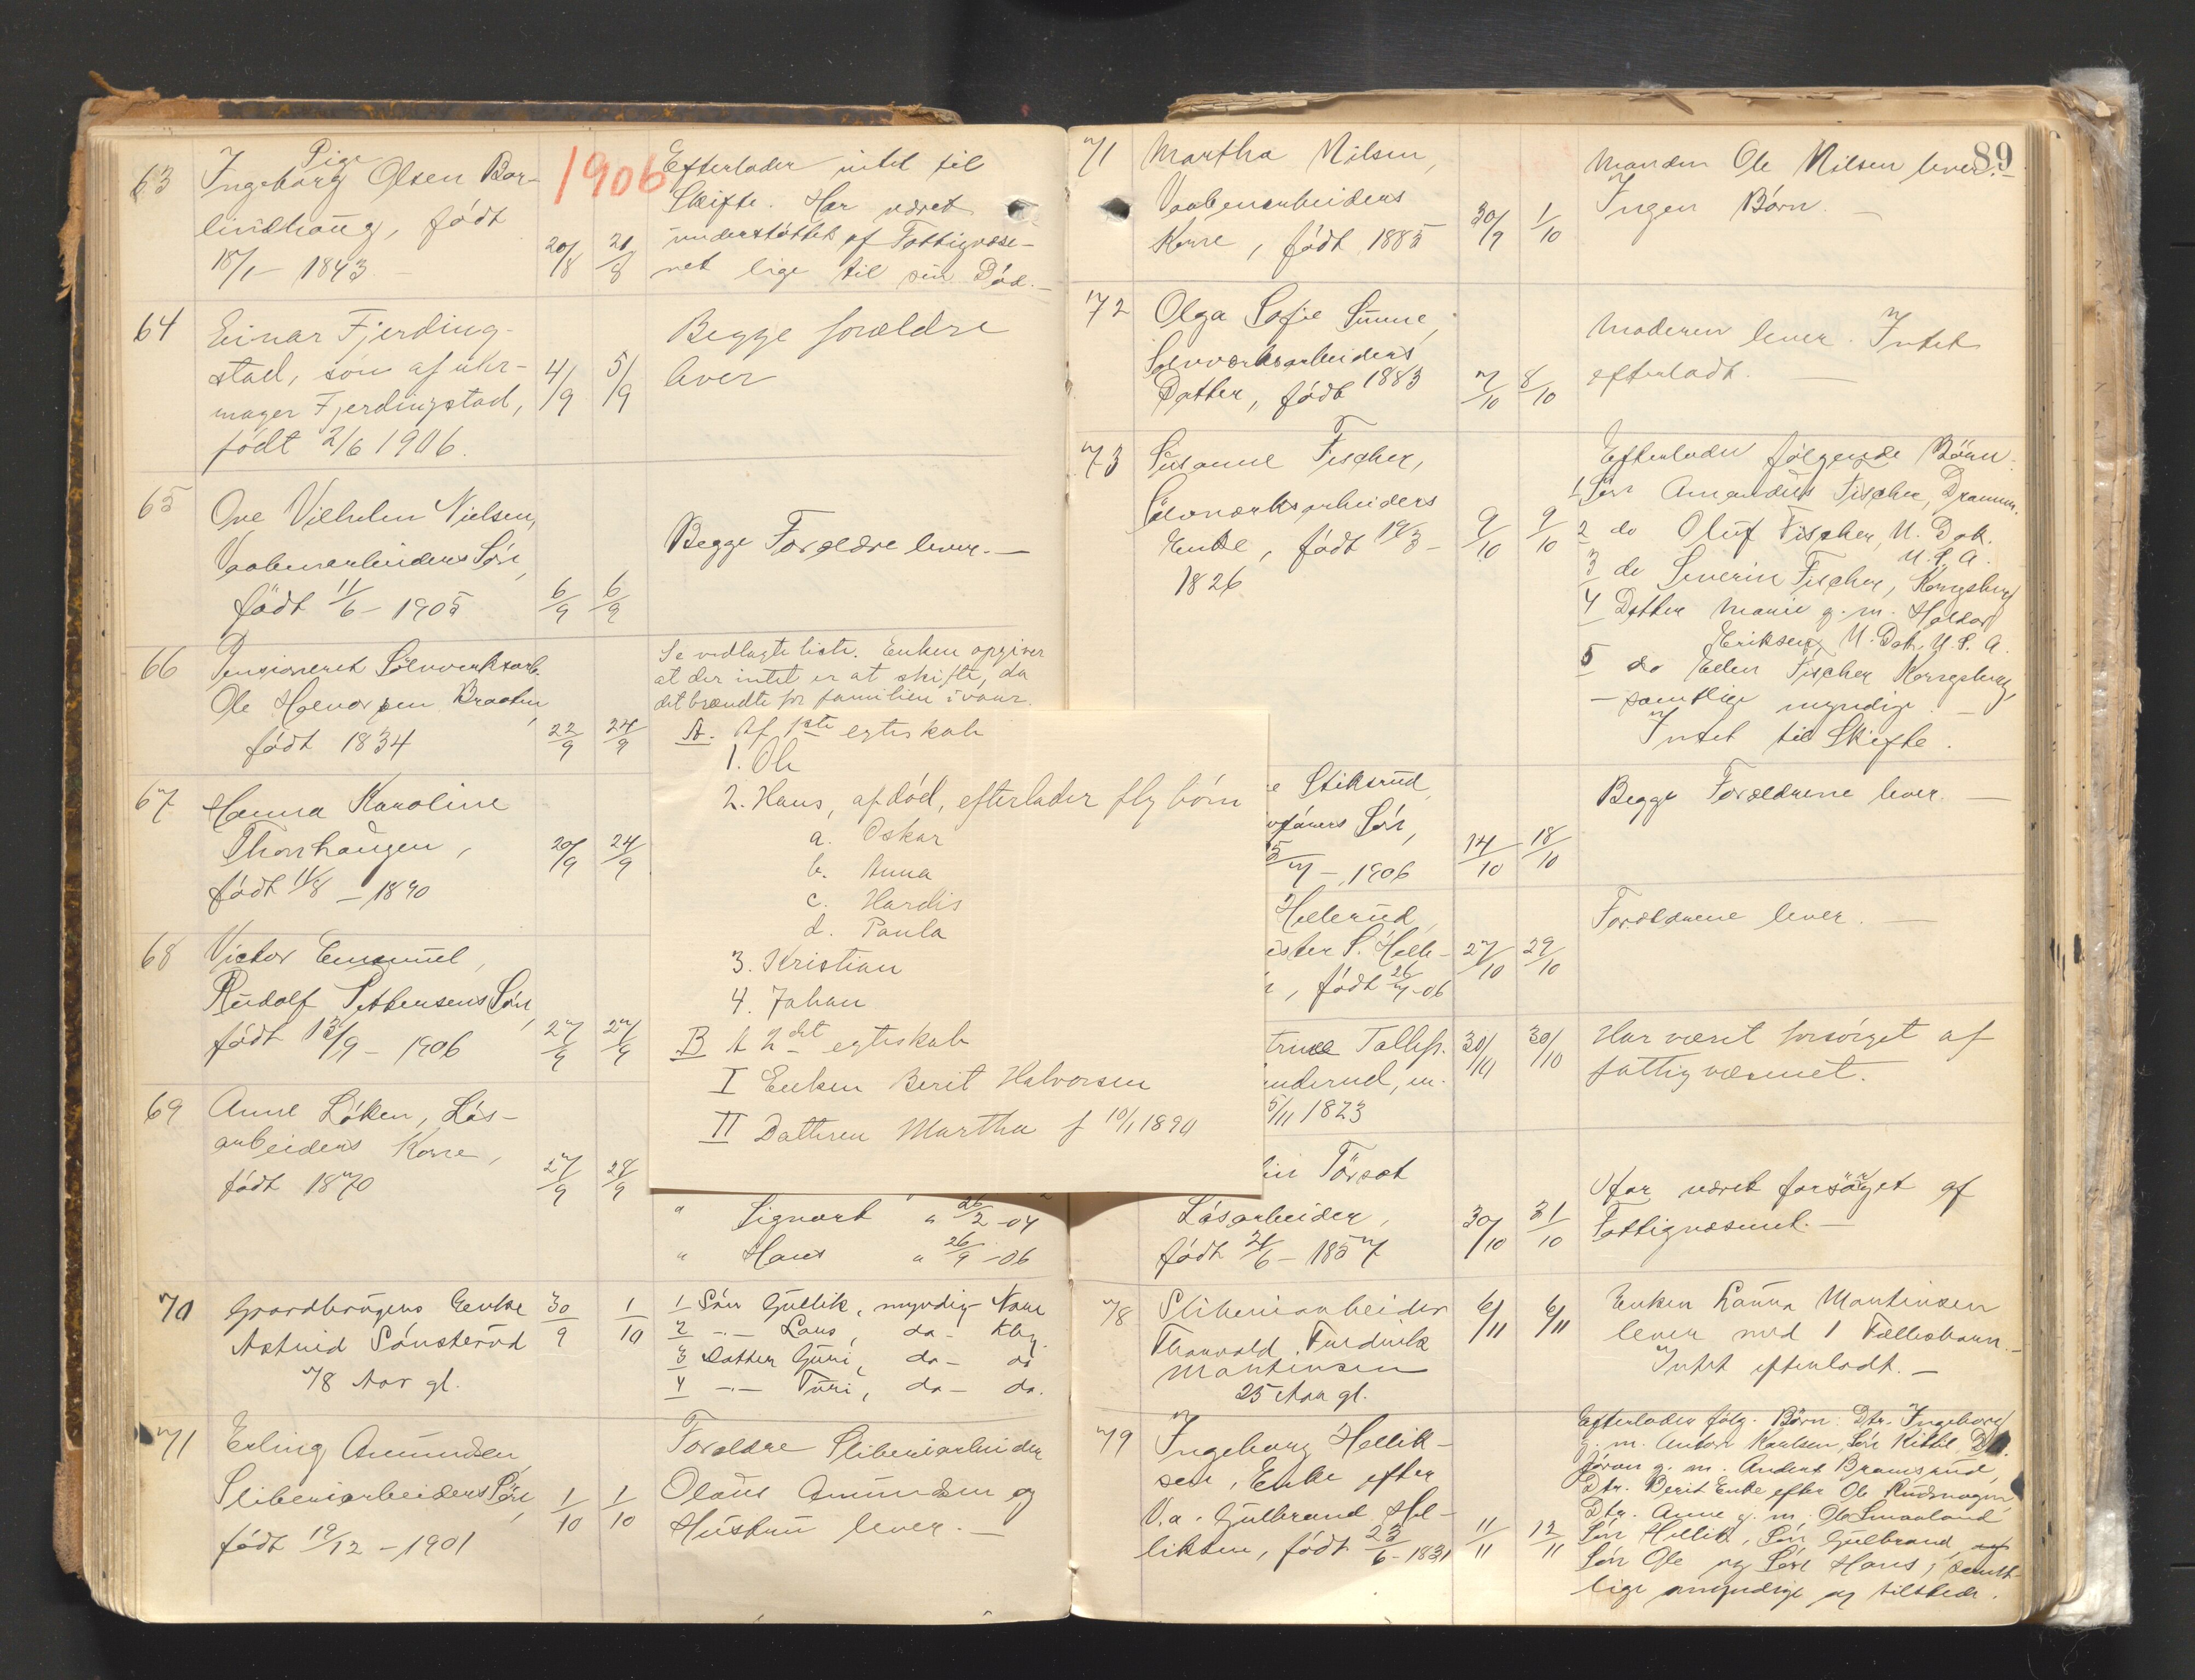 1906
63
Pige
Ingeborg Olsen Bor-
lindhaug, født
18/1 - 1843. -
20/8 21/8
Efterlader intet til
Skifte. Har været
understøttet af Fattigvæse-
net lige til sin Død. -
64
Einar Fjerding-
stad, søn af uhr-
mager Fjerdingstad,
født 2/6 1906.
4/9 5/9
Begge forældre
lever
65
Ove Vilhelm Nielsen,
Vaabenarbeiders Søn,
født 11/6 - 1905
6/9 6/9
Begge Forældre lever. -
66
Pensioneret Sølvverksarb.
Ole Halvorsen Braaten,
født 1834
22/9 24/9
Se vedlagte liste. Enken opgiver
at der intet er at skifte, da
det brændte for familien i vaar.
67
Hanna Karoline
Thorshaugen,
født 11/8 - 1890
20/9 24/9
68
Victor Emanuel,
Rudolf Pettersens Søn,
født 13/9 - 1906
27/9 27/9
69
Anne Løken, Løs-
arbeiders Kone,
født 1870
27/9 28/9
" Sigvart " 26/2 - 04
" Hans " 26/9 - 06
70
Gaardbrugers Enke
Astrid Sønsterød
78 Aar gl.
30/9 1/10
1 Søn Gullik, myndig
2 -.- Lars, do - Kbg.
3 Datter Guri, do - do
4 -.- Turi, do - do.
71
Erling Amundsen
Sliberiarbeiders Søn,
født 19/12 - 1901
1/10 1/10
Forældre Sliberiarbeider
Olaus Amundsen og
Hustru lever. -
A. Af 1ste egteskab
1. Ole
2. Hans, afdød, efterlader flg børn
a. Oskar
b. Anna
c. Hardis
d. Paula
3. Kristian
4. Johan
B A 2det egteskab
I Enken Berit Halvorsen
II Datteren Martha f 10/1 1890
89
71
Martha Nilsen,
Vaabenarbeiders
Kone, født 1885
30/9 1/10
Manden Ole Nilsen lever. -
Ingen Børn. -
72
Olga Sofie Sunne,
Sølvværksarbeiders
Datter, født 1883
7/10 8/10
Moderen lever. Intet
efterladt. -
73
Susanne Fischer,
Sølvværksarbeiders
Enke, født 19/3 -
1826
9/10 9/10
Efterlader følgende Børn:
1 Søn Amandus Fischer, Drammen.
2 do Oluf Fischer, N. Dak.
U.S.A.
3 do Severin Fischer, Kongsberg
4 Datter Marie g. m. Haldor
Eriksen, N. Dak. U.S.A.
5 do Ellen Fischer Kongsberg,
- samtlige myndige. -
Intet til Skifte.
e Stiksrud,
Søn,
5/7 - 1906
14/10 18/10
Begge Forældrene lever. -
Hellerud,
ister S. Helle-
, født 26/7 - 06
27/10 29/10
Forældrene lever. -
trine Tollefs.
underud,
5/11 1823
30/10 30/10
Har været forsørget af
fattigvæsenet.
Tørset
Løsarbeider,
født 21/6 - 1857
30/10 31/10
Har været forsørget af
Fattigvæsenet. -
78
Sliberiarbeider
Thorvald Fredrik
Martinsen
25 Aar gl.
6/11 6/11
Enken Laura Martinsen
lever med 1 Fællesbarn. -
Intet efterladt. -
79
Ingeborg Hellik-
sen, Enke efter
V.a. Gulbrand Hel-
liksen, født 23/6 - 1831
11/11 12/11
Efterlader følg. Børn: Dtr. Ingeborg
g. m. Anton Karlsen, Søn Kittil,
Jøran g. m. Anders Bramsrud,
Dtr. Berit Enke efter Ole
Dtr. Anne g. m. Ole Smaaland
Søn Hellik, Søn Gulbrand,
Søn Ole og Søn Hans, samt-
lige myndige og tilstede.